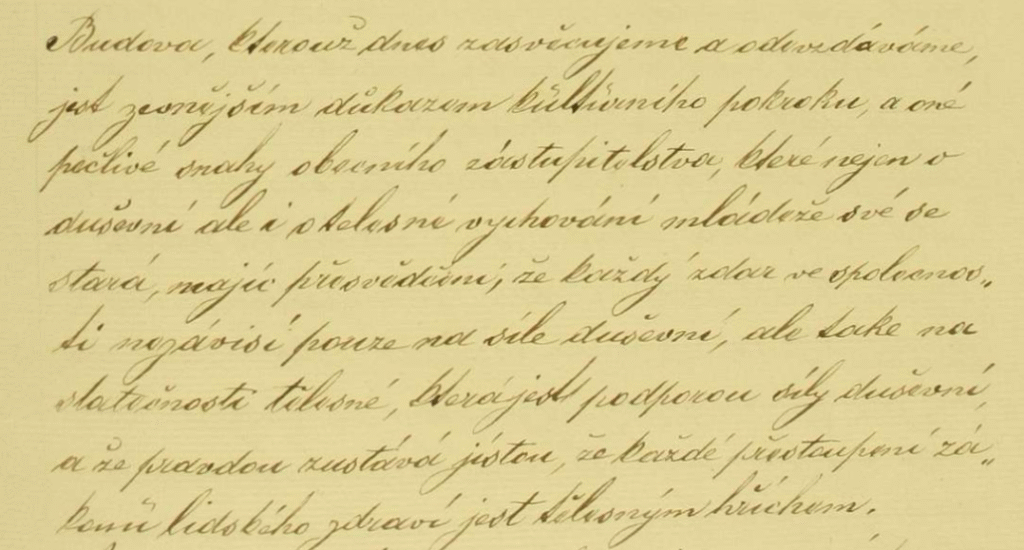 Budova, kterouž dnes zasvěcujeme a odevzdáváme,
jest zevnějším důkazem kůltůrního pokroku, a oné
pečlivé snahy obecního zástupitelstva, které nejen o
duševní ale i o telesné vychování mládeže své se
stará, majíc přesvědčení, že každý zdar ve společnos„
ti nezávisí pouze na síle duševní, ale take na
statečnosti tělesné, která jest podporou síly duševní,
a že pravdou zustává jistou, že každé přestoupení zá„
konů lidského zdraví jest tělesným hříchem.